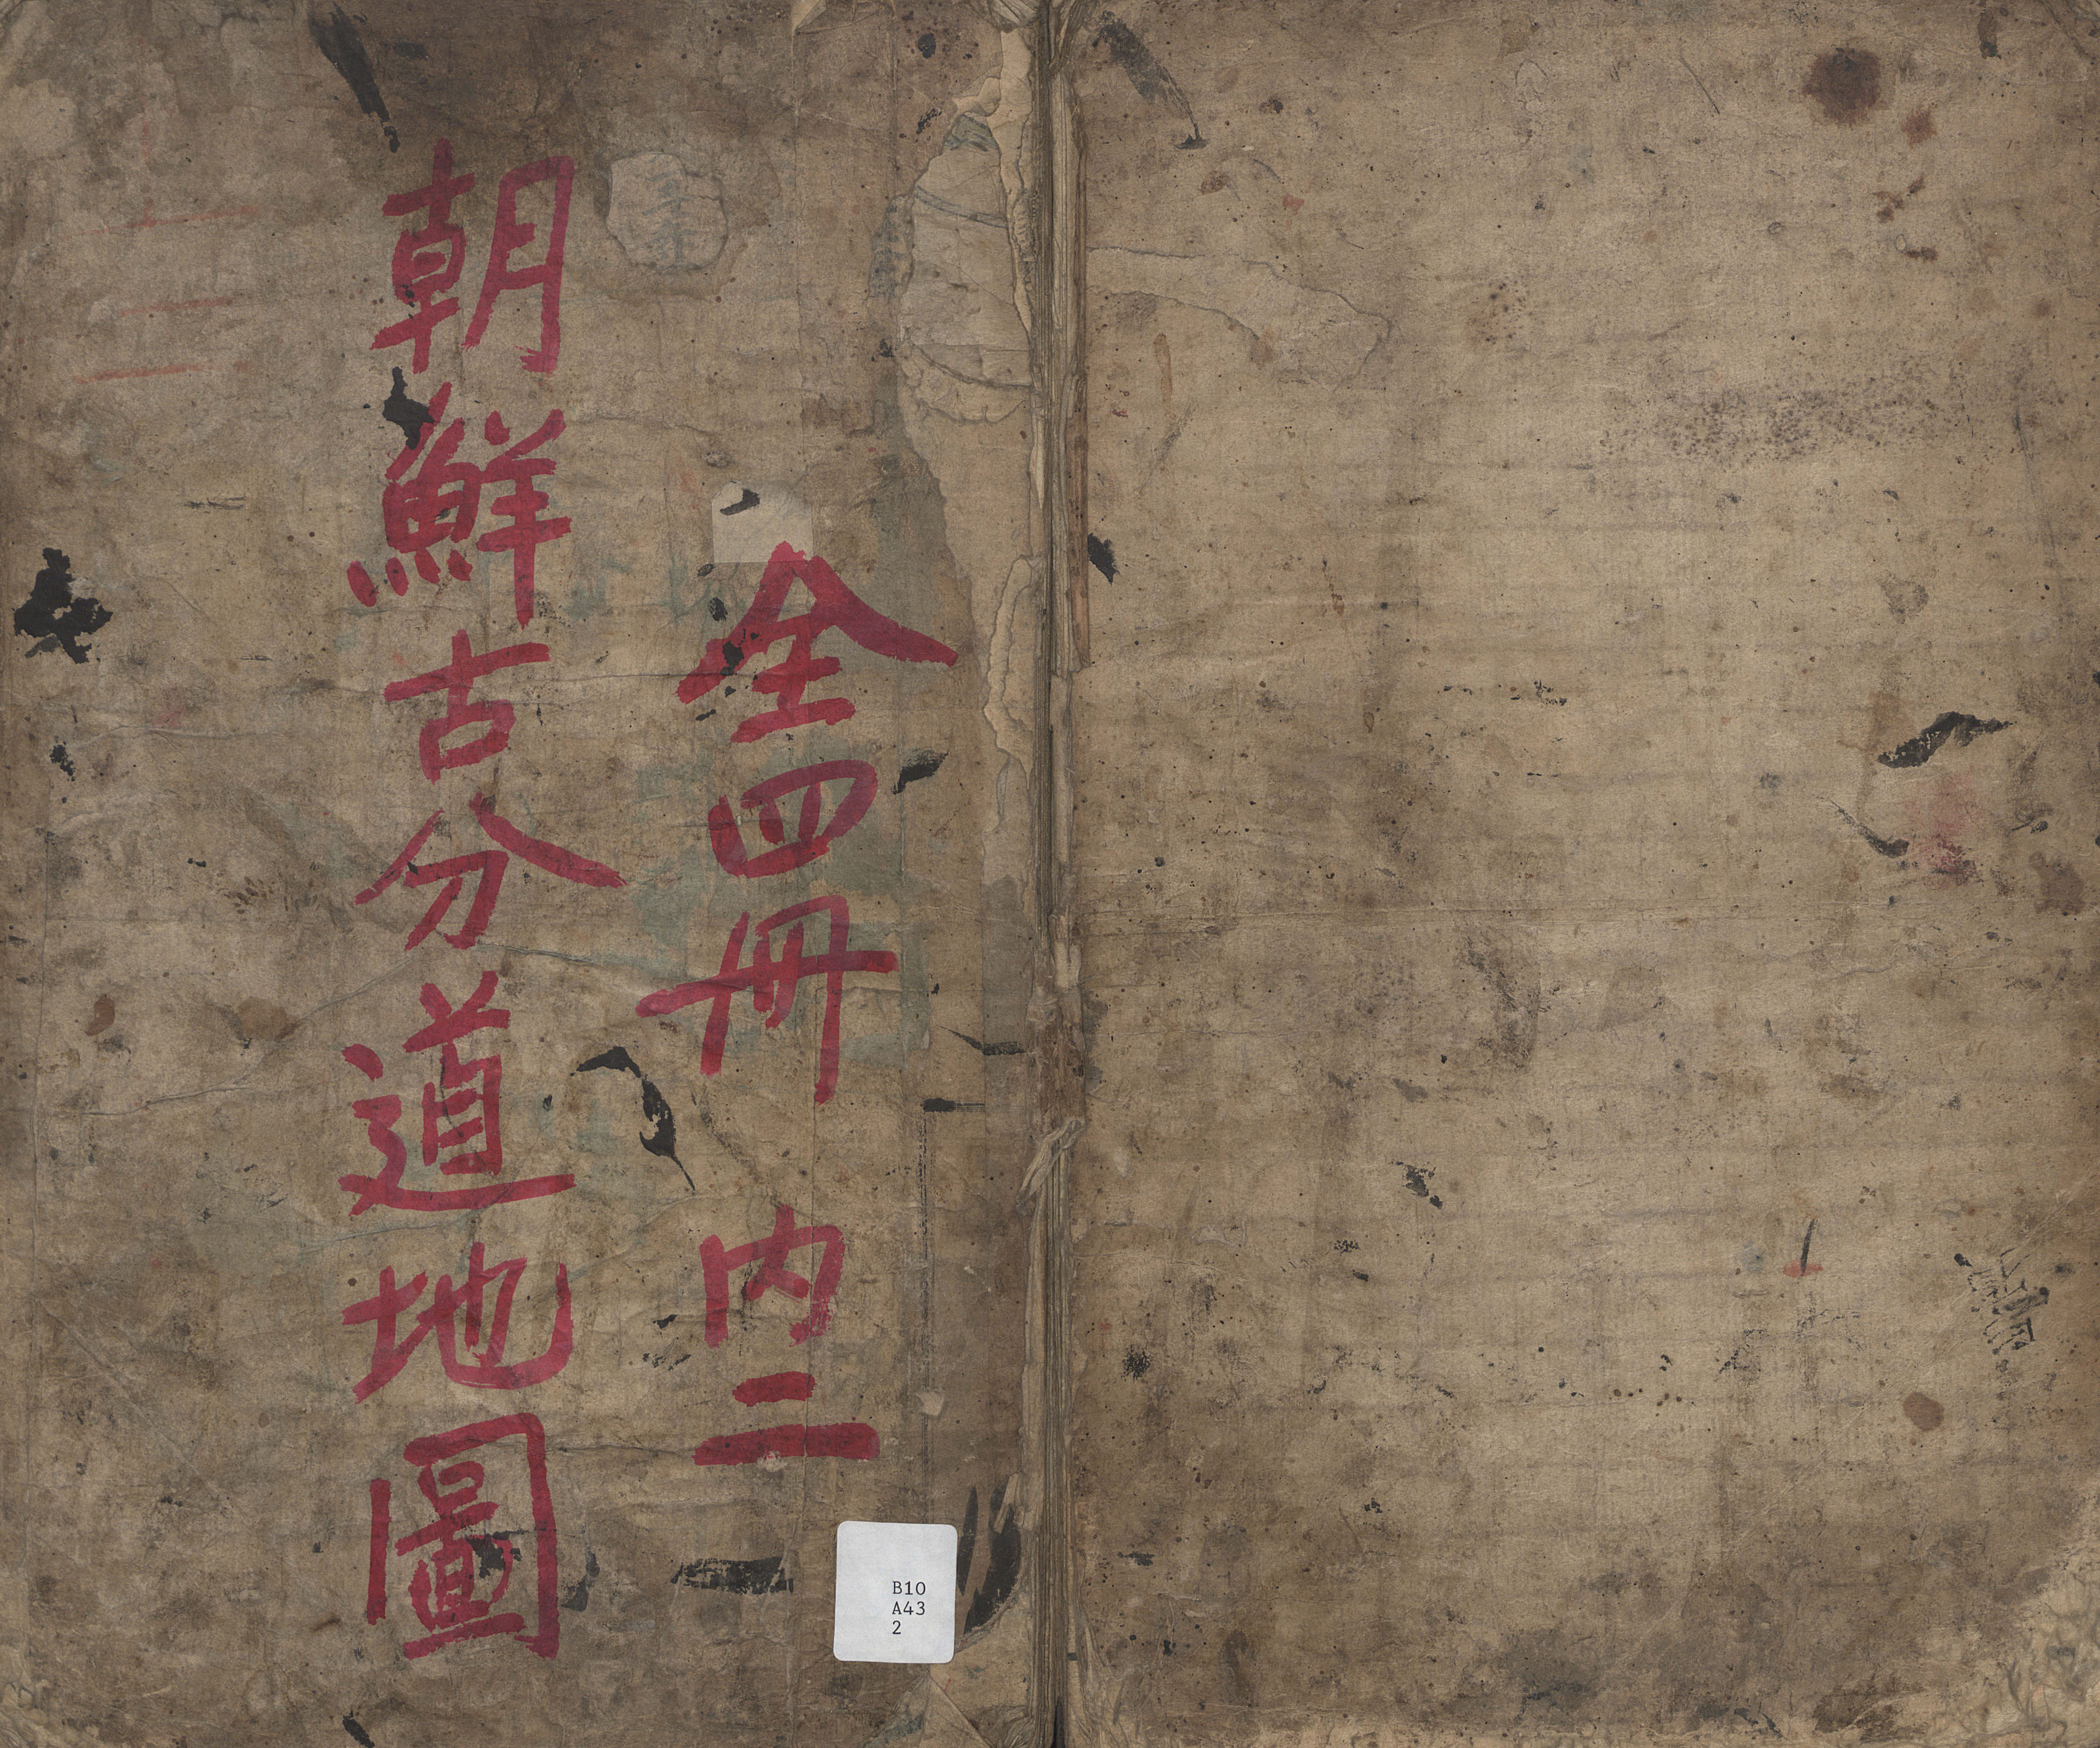 全四冊 内二
朝鮮古分道地圖
B10
A43
2